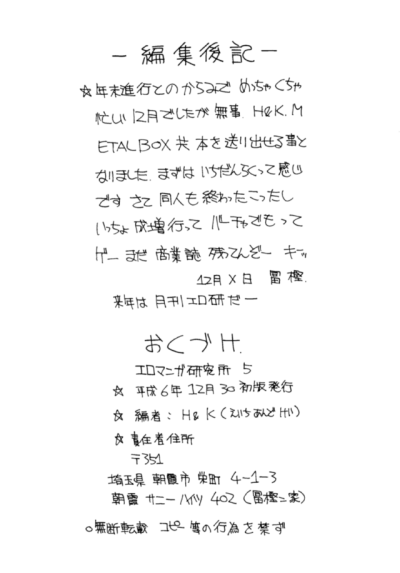 －編集後記－
☆年末進行とのからみで めっちゃくちゃ
忙しい12月でしたが 無事. H&K. M
ETALBOX 共 本を送り出せる事と
なりました. まずは いちだんらくって感じ
です さて 同人も 終わったこったし
いっちょ 成増 行って バーチャでもって
ゲー まだ 商業誌 残てんぞー キーッ
12月X日 冨樫.
来年は 月刊エロ研だー
おくづけ.
エロマンガ研究所 5
☆ 平成6年12月30 初版発行
☆ 編者: H&K (えいちあんどけい)
☆ 責任者住所
〒351
埼玉県 朝霞市 栄町 4-1-3
朝霞 サニーハイツ 402 (冨樫=家)
○無断転載 コピー 等の行為を禁ず